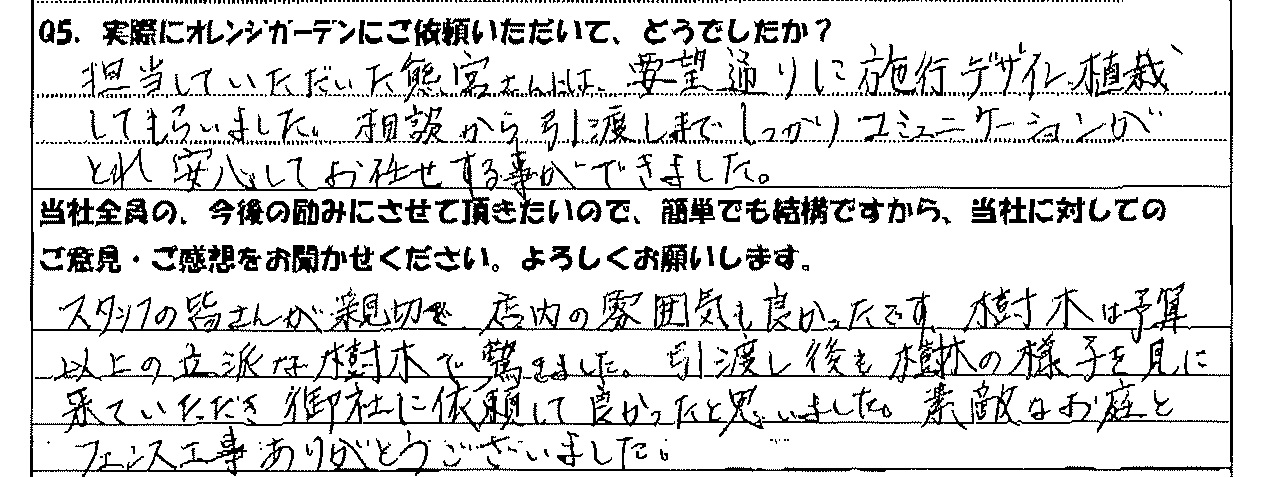 Q5. 実際にオレンジガーデンにご依頼いただいて、どうでしたか？
担当していただいた熊宮さんには、要望通りに施行デザイン、植栽
してもらいました。相談から引渡しまでしっかりコミュニケーションが
とれ安心してお任せする事ができました。
当社全員の、今後の励みにさせて頂きたいので、簡単でも結構ですから、当社に対しての
ご意見・ご感想をお聞かせください。よろしくお願いします。
スタッフの皆さんが親切で、店内の雰囲気も良かったです。樹木は予算
以上の立派な樹木で驚きました。引渡し後も樹木の様子を見に
来ていただき御社に依頼して良かったと思いました。素敵なお庭と
フェンス工事ありがとうございました。